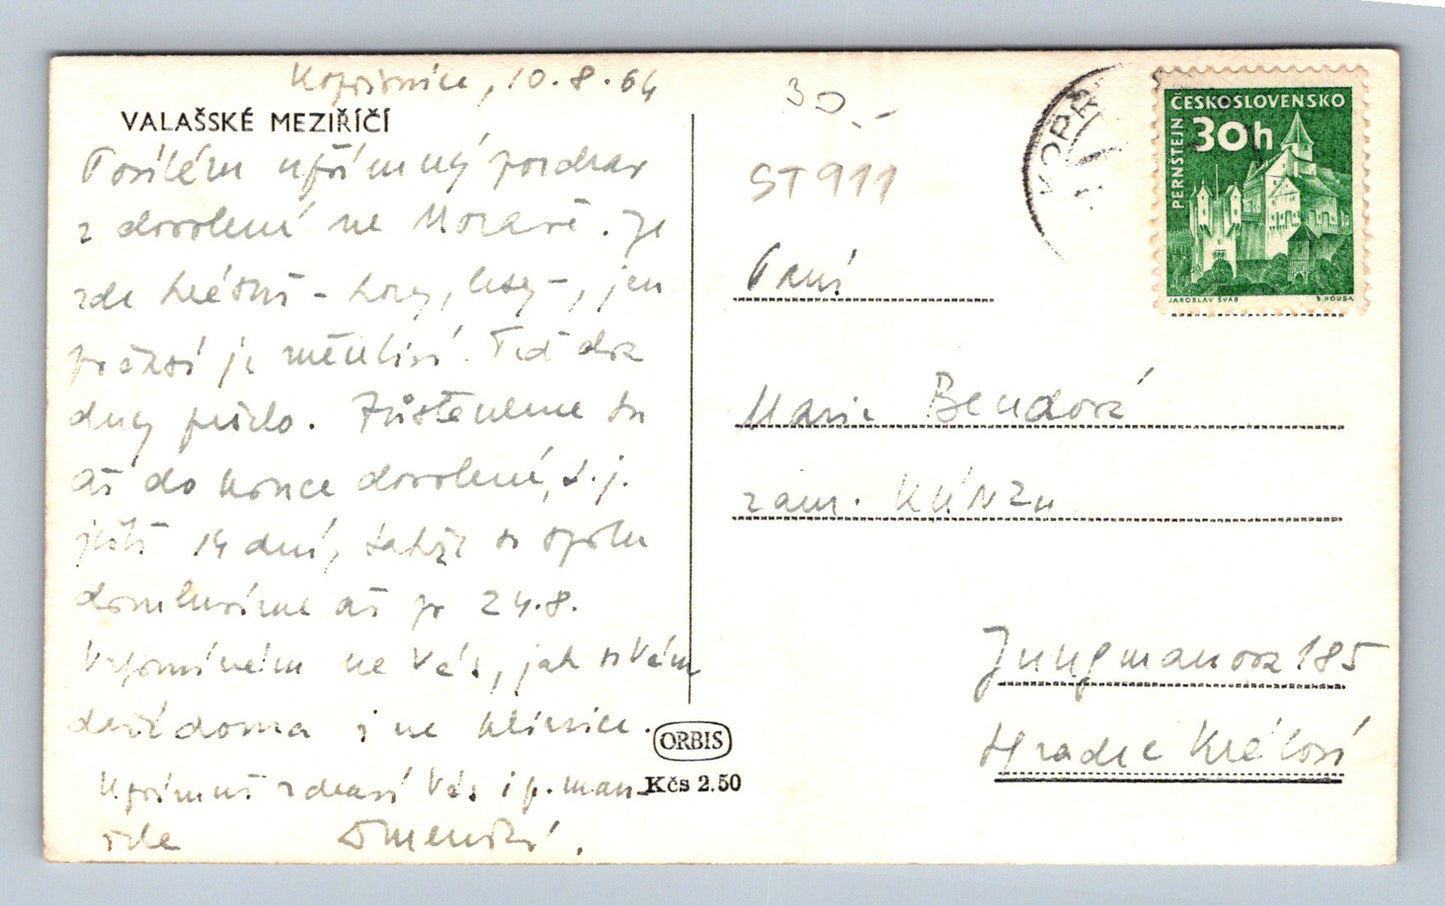 Kopřivnice, 10.8.64
VALAŠSKÉ MEZIŘÍČÍ
Posílám upřímný pozdrav
z dovolené na Moravě. Je
zde krásně - hory, lesy -, jen
počasí je měnlivé. Teď dva
dny pršelo. Zůstaneme tu
až do konce dovolené, t.j.
ještě 14 dní, takže si spolu
domluvíme až po 24.8.
Vzpomínám na Vás, jak se Vám
daří doma i na klinice.
Upřímně zdraví Vás i p. man-
žela
30.-
ST 911
Paní
Marie Bendová
zam. KÚNZu
Jungmanova 185
Hradec Králové
ORBIS
Kčs 2.50
KOPŘ
ČESKOSLOVENSKO
30h
PERNŠTEJN
JAROSLAV ŠVÁB